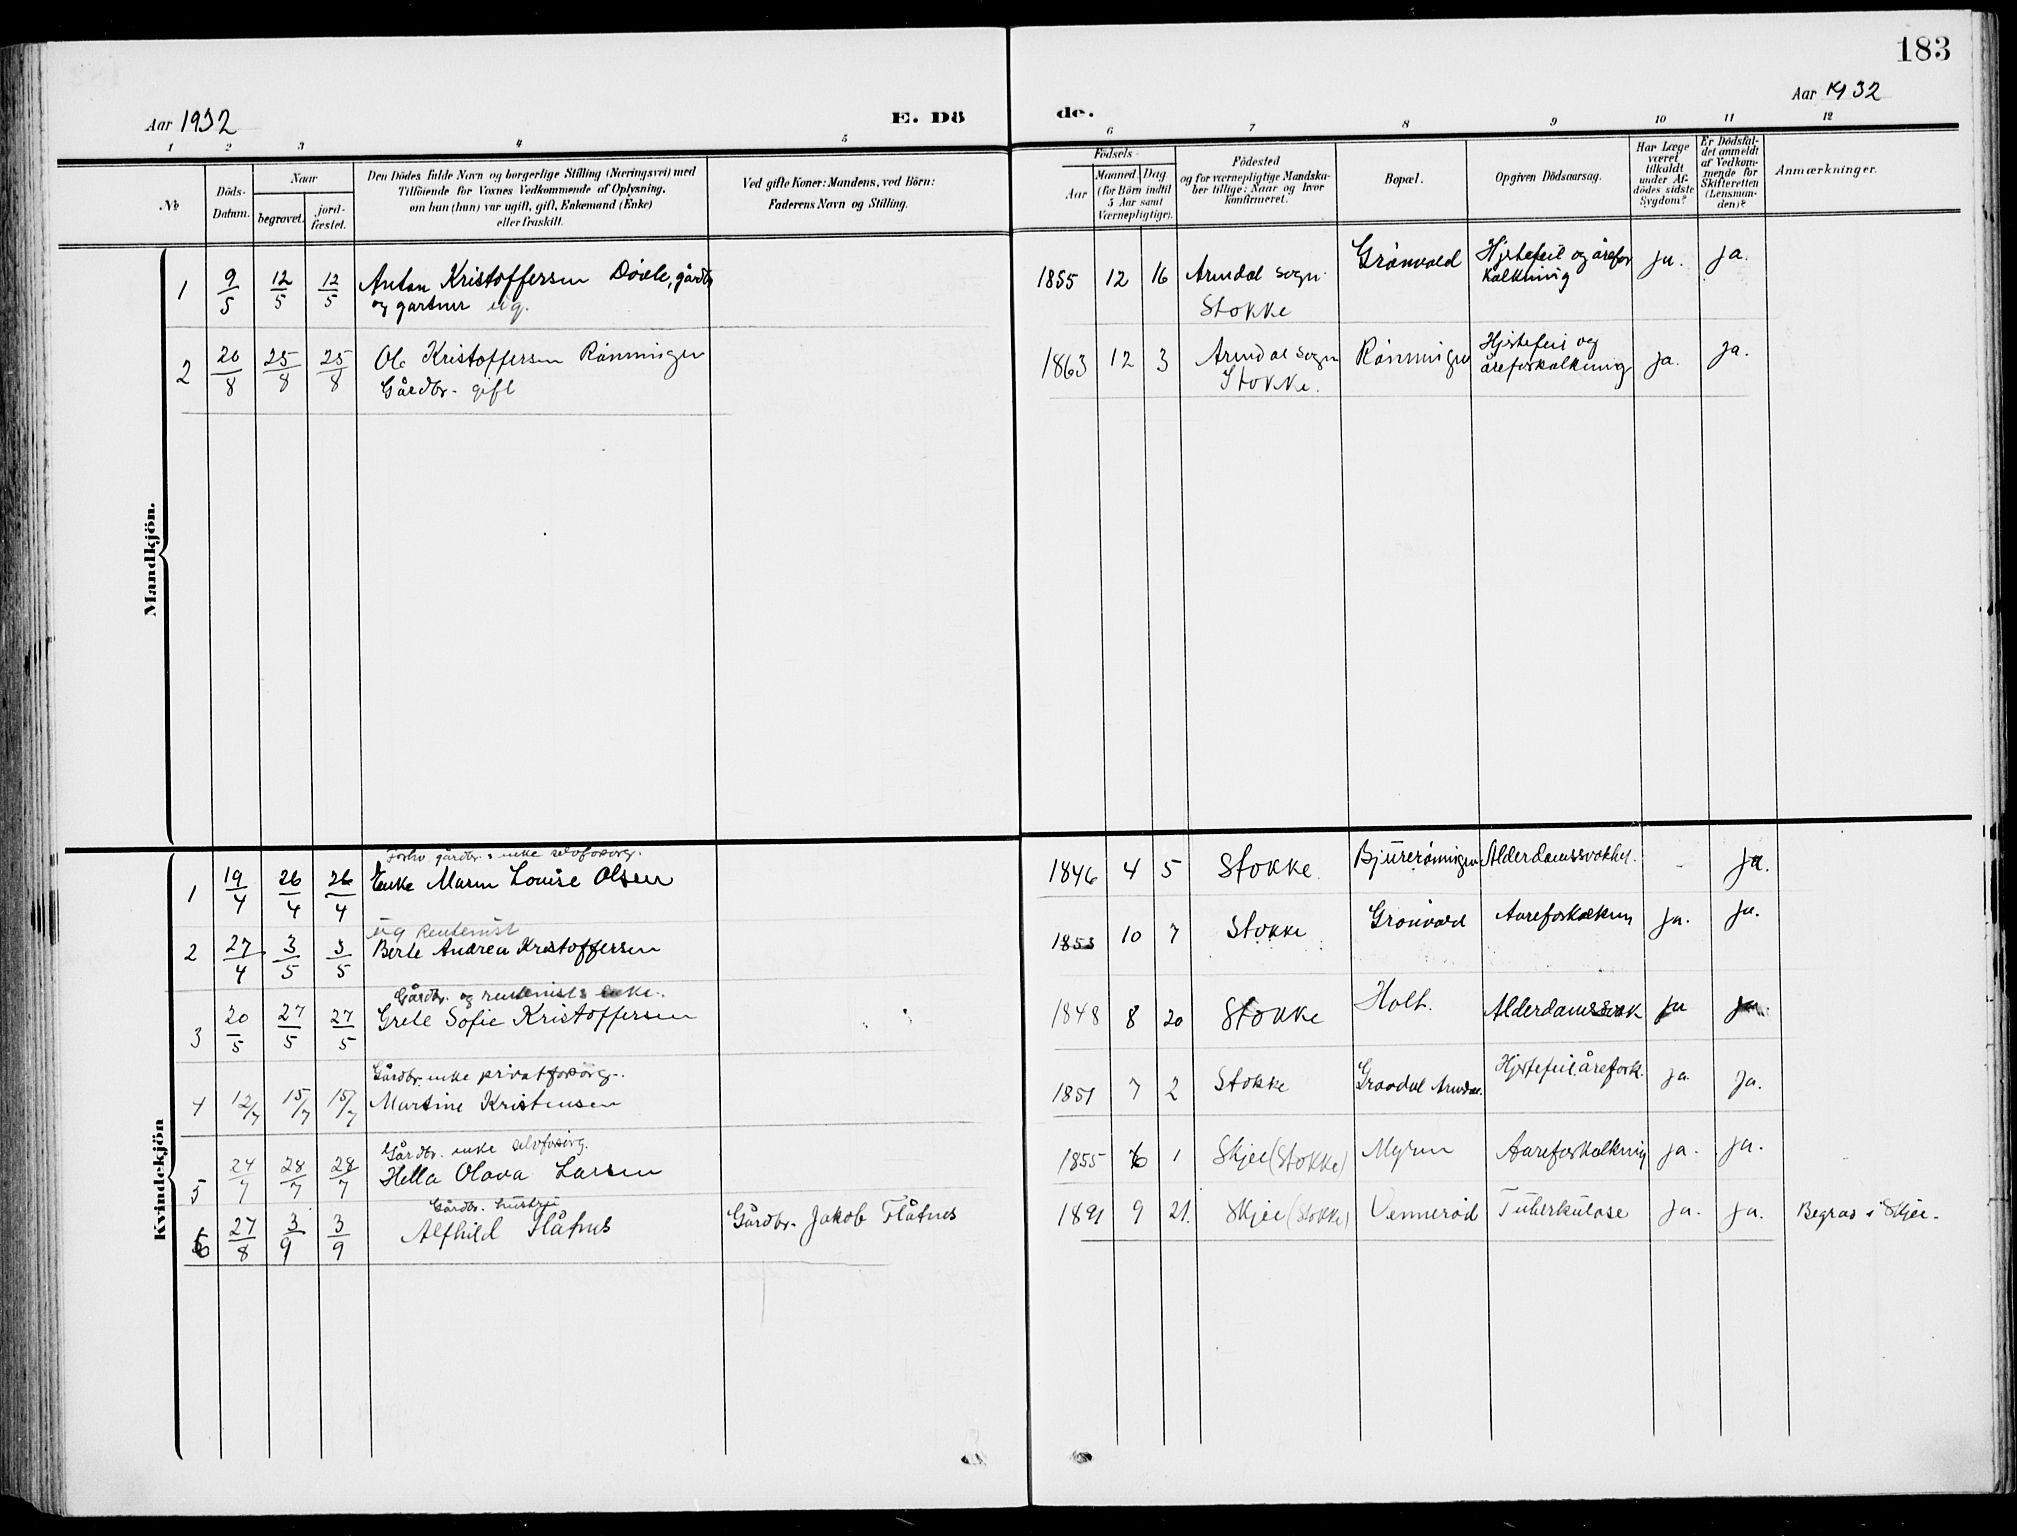 183
Aar 1932
E. Dö
de.
Aar 1932
1 2 3 4 5 6 7 8 9 10 11 12
№
Döds-
Datum.
Naar
begravet.
jord-
fæstet.
Den Dödes fulde Navn og borgerlige Stilling (Næringsvei) med
Tilföiende for Voxnes Vedkommende af Oplysning,
om han (hun) var ugift, gift, Enkemand (Enke)
eller fraskilt.
Ved gifte Koner: Mandens, ved Börn:
Faderens Navn og Stilling.
Födsels-
Aar
Maaned Dag
(for Börn indtil
5 Aar samt
Værnepligtige).
Födested
og for værnepligtige Mandska-
ber tillige: Naar og hvor
konfirmeret.
Bopæl.
Opgiven Dödsaarsag.
Har Læge
været
tilkaldt
under Af-
dödes sidste
Sygdom?
Er Dödsfal-
det anmeldt
af Vedkom-
mende for
Skifteretten
(Lensman-
den)?
Anmærkninger.
Mandkjön.
1 9/5 12/5 12/5 Anton Kristoffersen gårdbr 1855 12 16 Arendal sogn Grönvold Hjertefeil og årefor ja. ja.
og gartner ug. Stokke kalkning
2 20/8 25/8 25/8 Ole Kristoffersen Rønningen 1863 12 3 Arendal sogn Rønningen Hjertefeil og ja. ja.
Gårdbr. gift Stokke. åreforkalkning
Kvindekjön
Forhv gårdbr.s enke selvforsørg.
1 19/4 26/4 26/4 Enke Maren Louise Olsen 1846 4 5 Stokke. Bjurerönningen Alderdomssvakhet. - ja.
ug Rentenist
2 27/4 3/5 3/5 Berte Andrea Kristoffersen 1853 10 7 Stokke Gronvold Aareforkalkn ja. ja.
Gårdbr. og rentenists enke.
3 20/5 27/5 27/5 Grete Sofie Kristoffersen 1848 8 20 Stokke Holt. Alderdomssvak ja ja
Gårdbr. enke privatforsørg.
4 12/7 15/7 15/7 Martine Kristensen 1851 7 2 Stokke Hjertefeil årefork. ja. ja.
Gårdbr. enke selvforsørg.
5 24/7 28/7 28/7 Hella Olava Larsen 1855 6 1 Skjee (Stokke) Myren Aareforkalkning ja. ja.
Gårdbr. hustru
6 27/8 3/9 3/9 Alfhild Flåtnes Gårdbr. Jakob Flåtnes 1891 9 21. Skjee (Stokke) Vennerød Tuberkulose ja. ja. Begrav i Skjee.